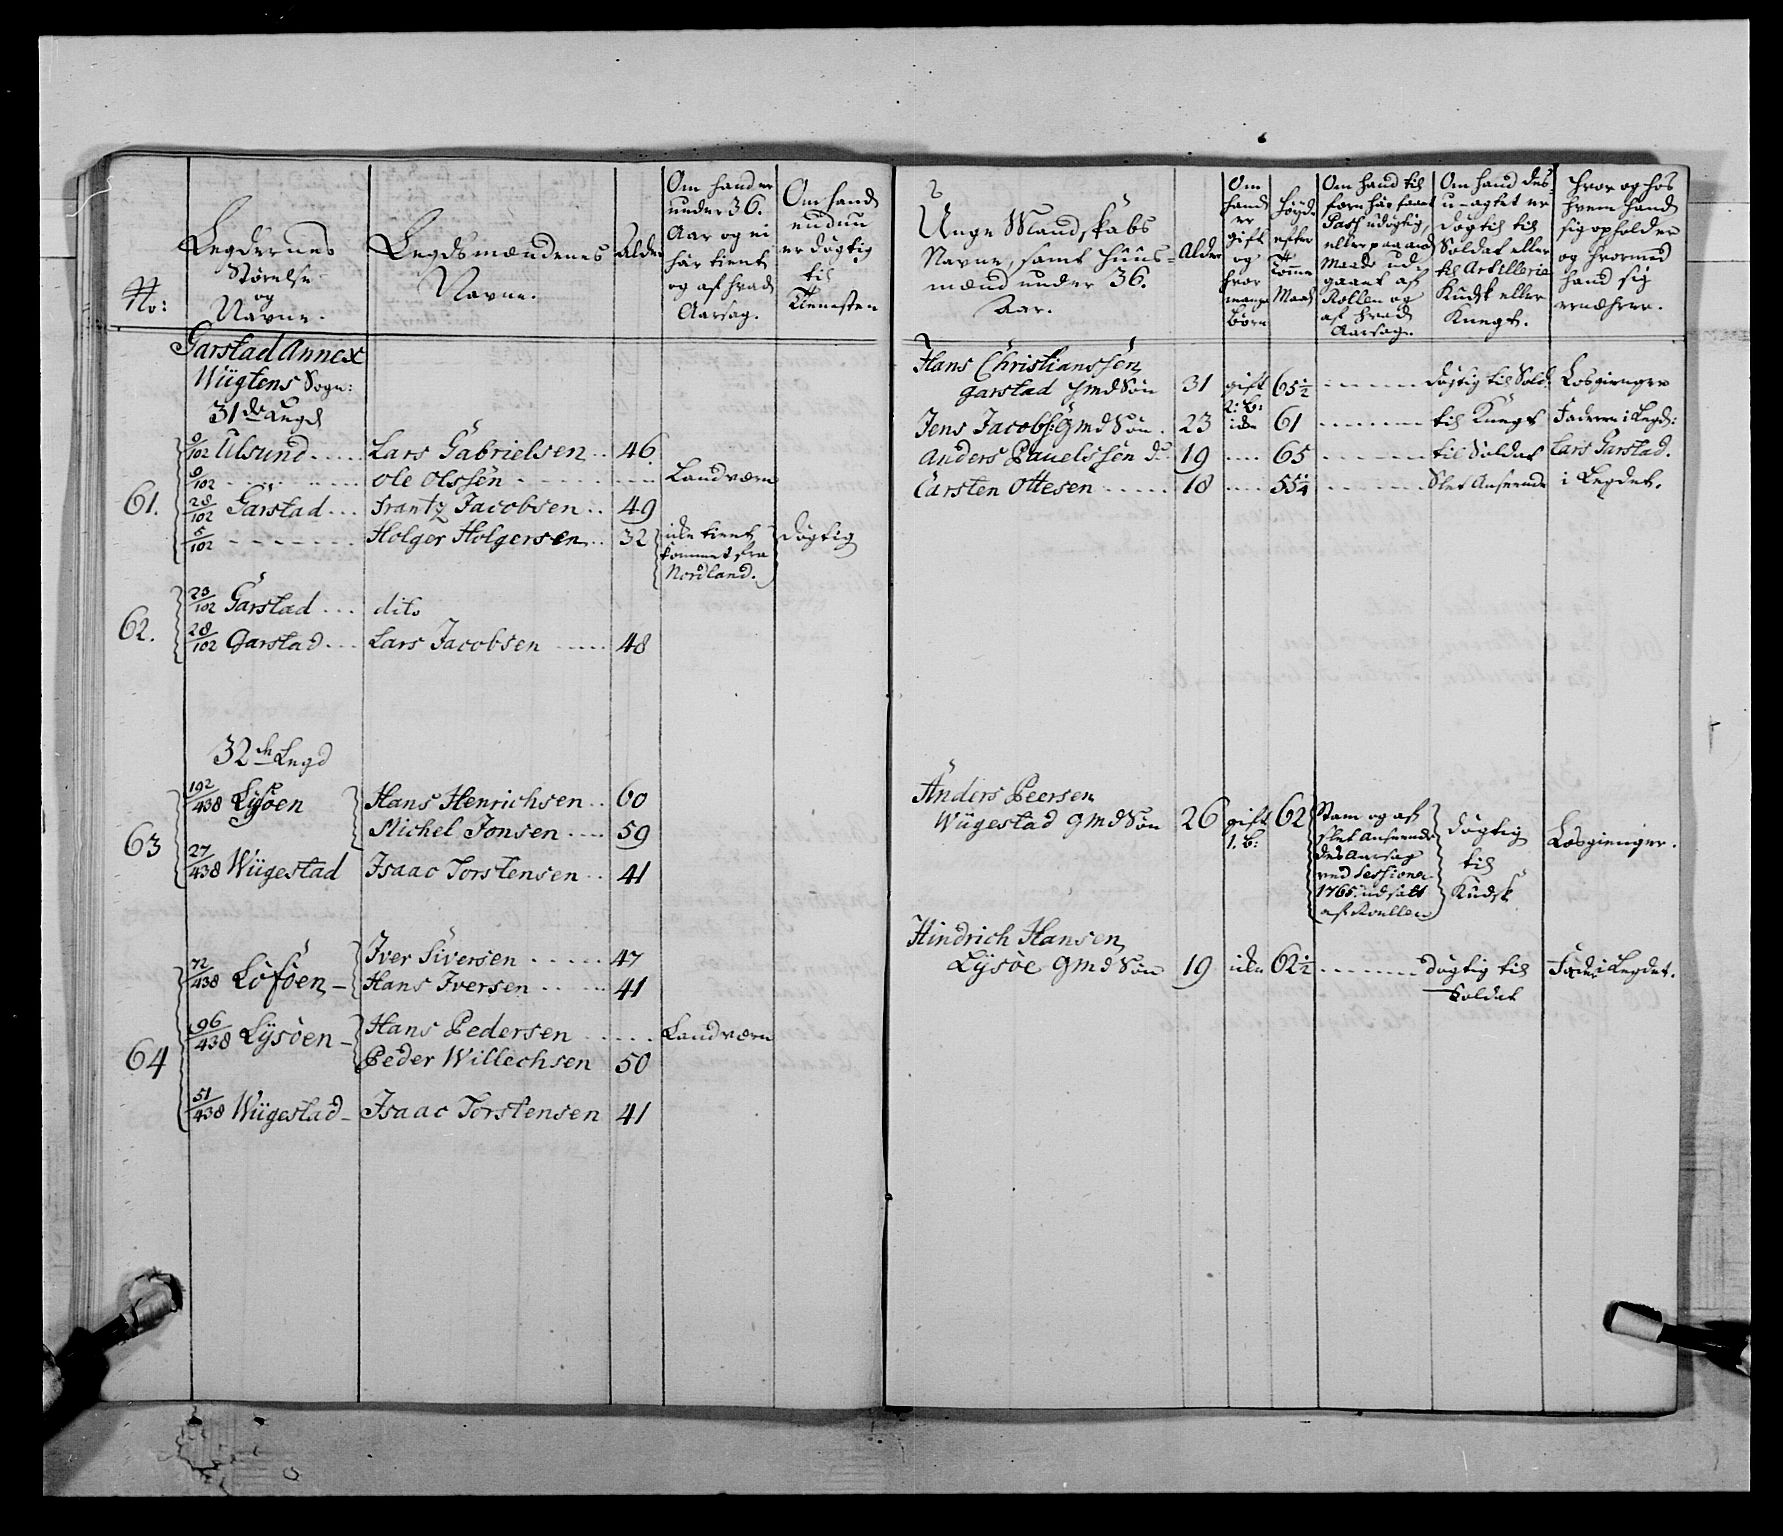 No:
Legdernes
Størelse
og
Navne.
Legdsmændenes
Navne.
Alder
Om hand er
under 36.
Aar og ei
har tient
og af hvad
Aarsag.
Om hand
endnu
er dögtig
til
Tienesten
Garstad Annex
Wügtens Sogn:
31de Legd
61.
9/102 Ulsund .... Lars Gabrielsen .. 46.
9/102 ........ ole olssön ........ Landværn
28/102 Garstad ... Frantz Jacobsen .. 49
5/102 ....... Holger Holgersen .. 32 ikke tient Dögtig
kommet fra
Nordland.
62.
23/102 Garstad ... dito
28/102 Garstad ... Lars Jacobsen ..... 48
32te Legd
63
192/438 Lÿsöen Hans Henrichsen .. 60
Michel Jonsen .... 59
27/438 Wügestad Isaac Torstensen .. 41
64
72/438 Löföen - Iver Siversen ..... 47
Hans Iversen ..... 41
96/438 Lÿsöen - Hans Pedersen ..... Landværn
Peder Willechsen 50
51/438 Wügestad - Isaac Torstensen 41
Unge Mandskabs
Navne, samt Huus-
mænd under 36.
Aar.
Alder
Om
hand
er
gift
og
hvor
mange
Börn
Høyde
efter
Tomme
Maal
Om hand til
forn har faaet
Pass udögtig
eller paa and
Maade ud
gaaet af
Rollen og
af hvad
Aarsag.
Om hand des-
u-agtet er
dögtig til
Soldat eller
til Artillerie
Kudsk eller
Knegt.
Hvor og hos
hvem hand
sig opholder
og hvormed
hand sig
ernærer.
Hans Christianssön
Garstad gmdSön 31 gift 65 1/2 ....... dögtig til Sold. Losgienger
2: b:
Jens Jacobs: GmdSön . 23 ikke 61 ....... til Knegt Faderen i Legd:
Anders Pauelssön do 19 .... 65 ....... til Soldat Lars Garstad.
Carsten Ottesen ..... 18 .... 55 1/4 ....... Slet Anseende i Legdet.
Anders Peersen
Wügestad GmdSön 26 gift 62
1. b:
Stam og af
slet Anseende
des Aarsag
ved Sessionen
1765. udsatt
af Roullen
dögtig
til
Kudsk
Losgienger.
Hindrich Hansen
Lÿsöe GmdSön 19 ikke 62 1/2 ....... dögtig til Fader i Legdet.
Soldat